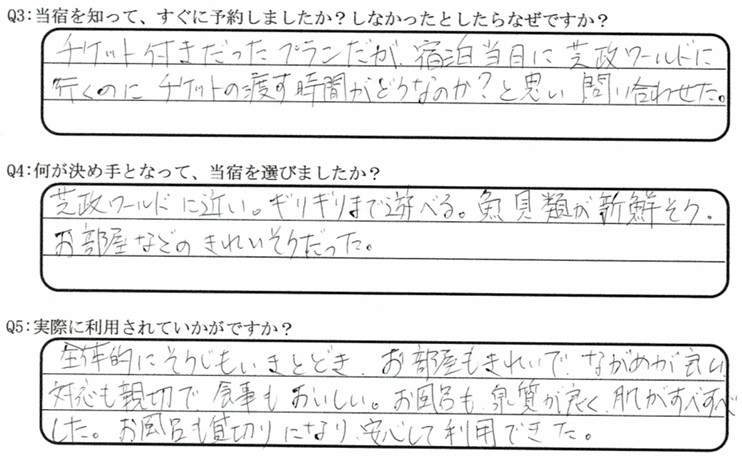 Q3:当宿を知って、すぐに予約しましたか？しなかったとしたらなぜですか？
チケット付きだったプランだが、宿泊当日に芝政ワールドに
行くのに チケットの渡す時間がどうなのか？と思い 問い合わせた。
Q4:何が決め手となって、当宿を選びましたか？
芝政ワールドに近い。ギリギリまで遊べる。魚貝類が新鮮そう。
お部屋などのきれいそうだった。
Q5:実際に利用されていかがですか？
全体的にそうじもいきとどき、お部屋もきれいで、ながめが良い
対応も親切で、食事もおいしい。お風呂も、泉質が良く、肌がすべすべ
した。お風呂も貸切りになり、安心して利用できた。